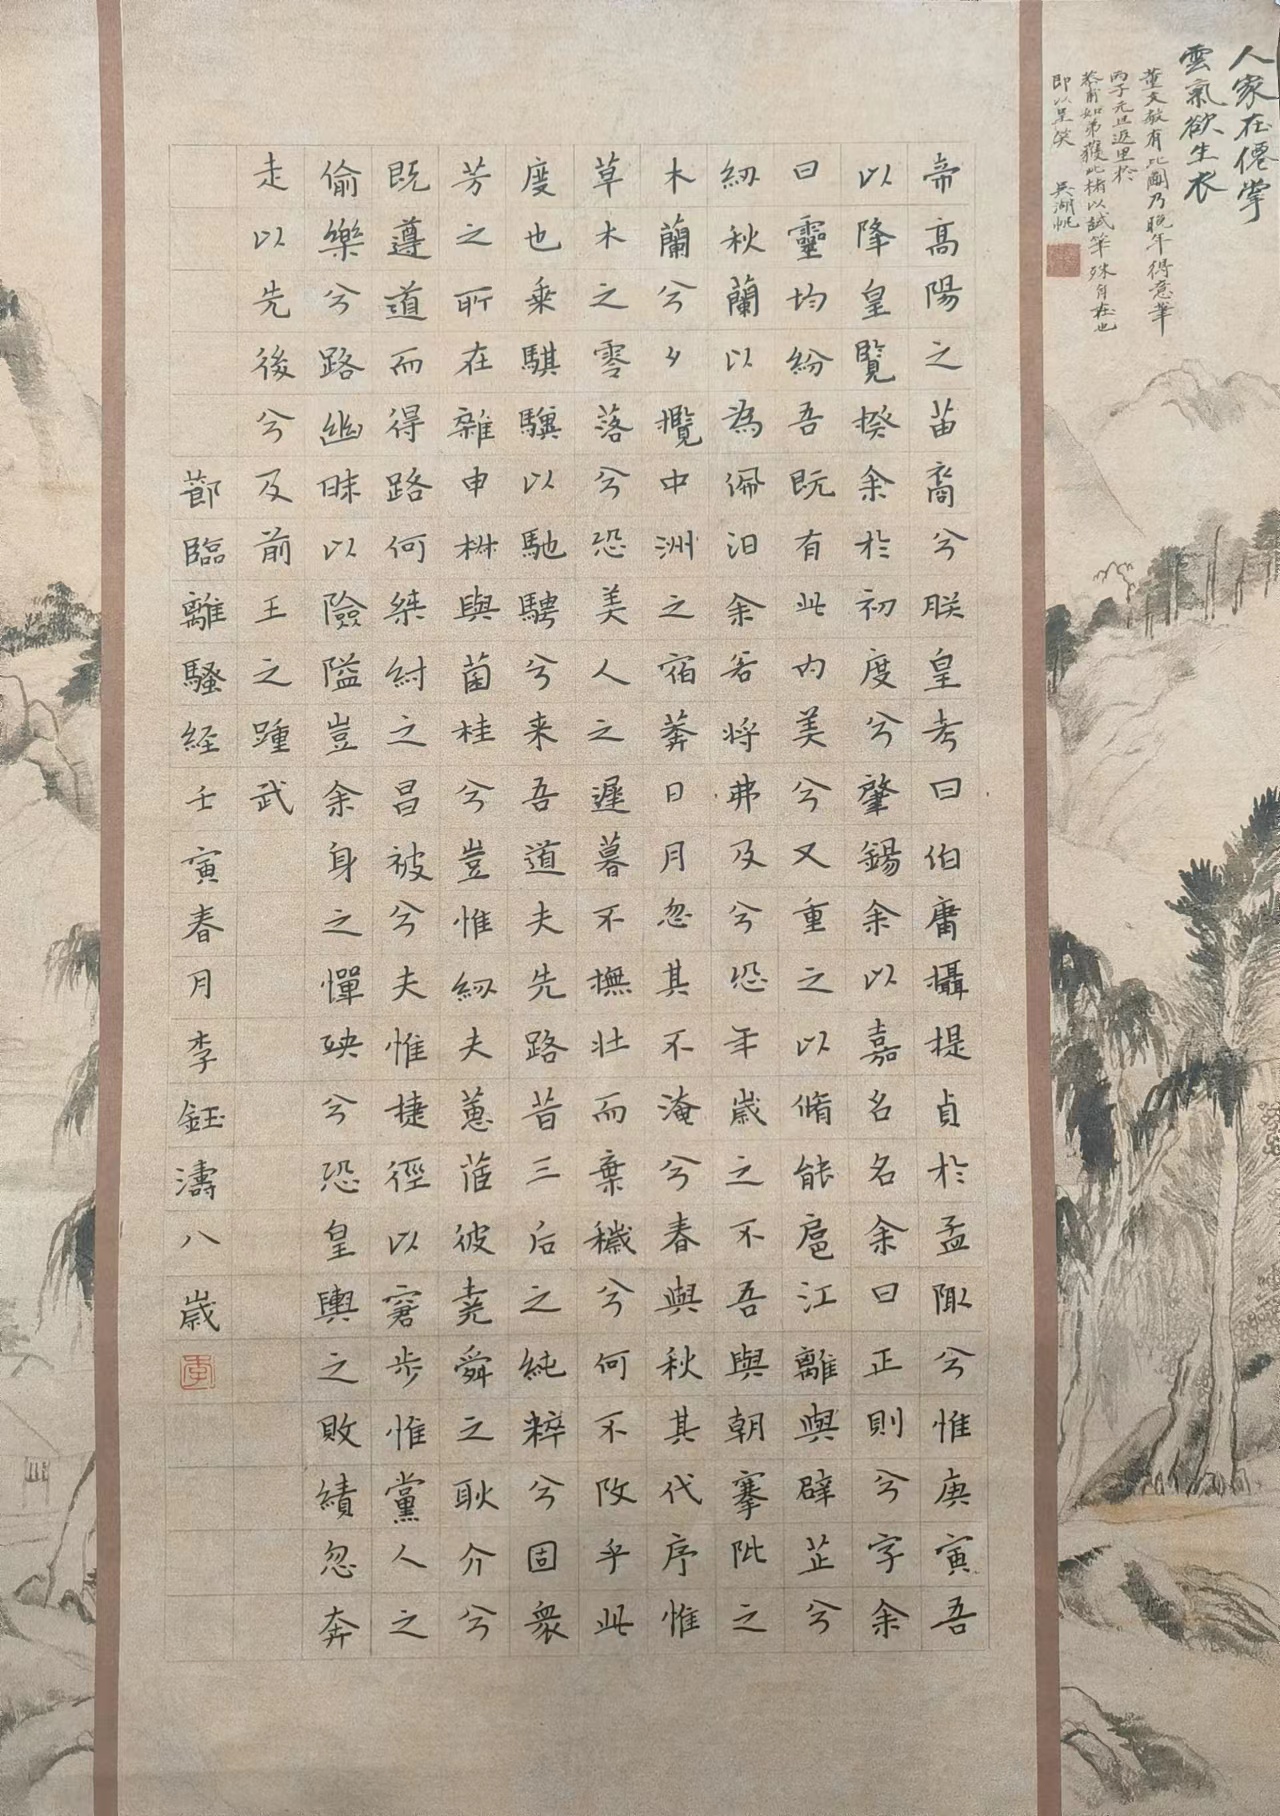 人家在僊掌
雲氣欲生衣
董文敏有此圖乃晚年得意筆
丙子元旦返里於
恭甫如弟獲此楮以試筆殊自在也
即以呈笑 吳湖帆
帝高陽之苗裔兮朕皇考曰伯庸攝提貞於孟陬兮惟庚寅吾
以降皇覽揆余於初度兮肇錫余以嘉名名余曰正則兮字余
曰靈均紛吾既有此內美兮又重之以脩能扈江離與辟芷兮
紉秋蘭以為佩汩余若將弗及兮恐年歲之不吾與朝搴阰之
木蘭兮夕攬中洲之宿莽日月忽其不淹兮春與秋其代序惟
草木之零落兮恐美人之遲暮不撫壯而棄穢兮何不改乎此
度也乘騏驥以馳騁兮来吾道夫先路昔三后之純粹兮固眾
芳之所在雜申椒與菌桂兮豈惟紉夫蕙茝彼堯舜之耿介兮
既遵道而得路何桀紂之昌被兮夫惟捷徑以窘步惟黨人之
偷樂兮路幽昧以險隘豈余身之憚殃兮恐皇輿之敗績忽奔
走以先後兮及前王之踵武
節臨離騷經壬寅春月李鈺濤八歲
李